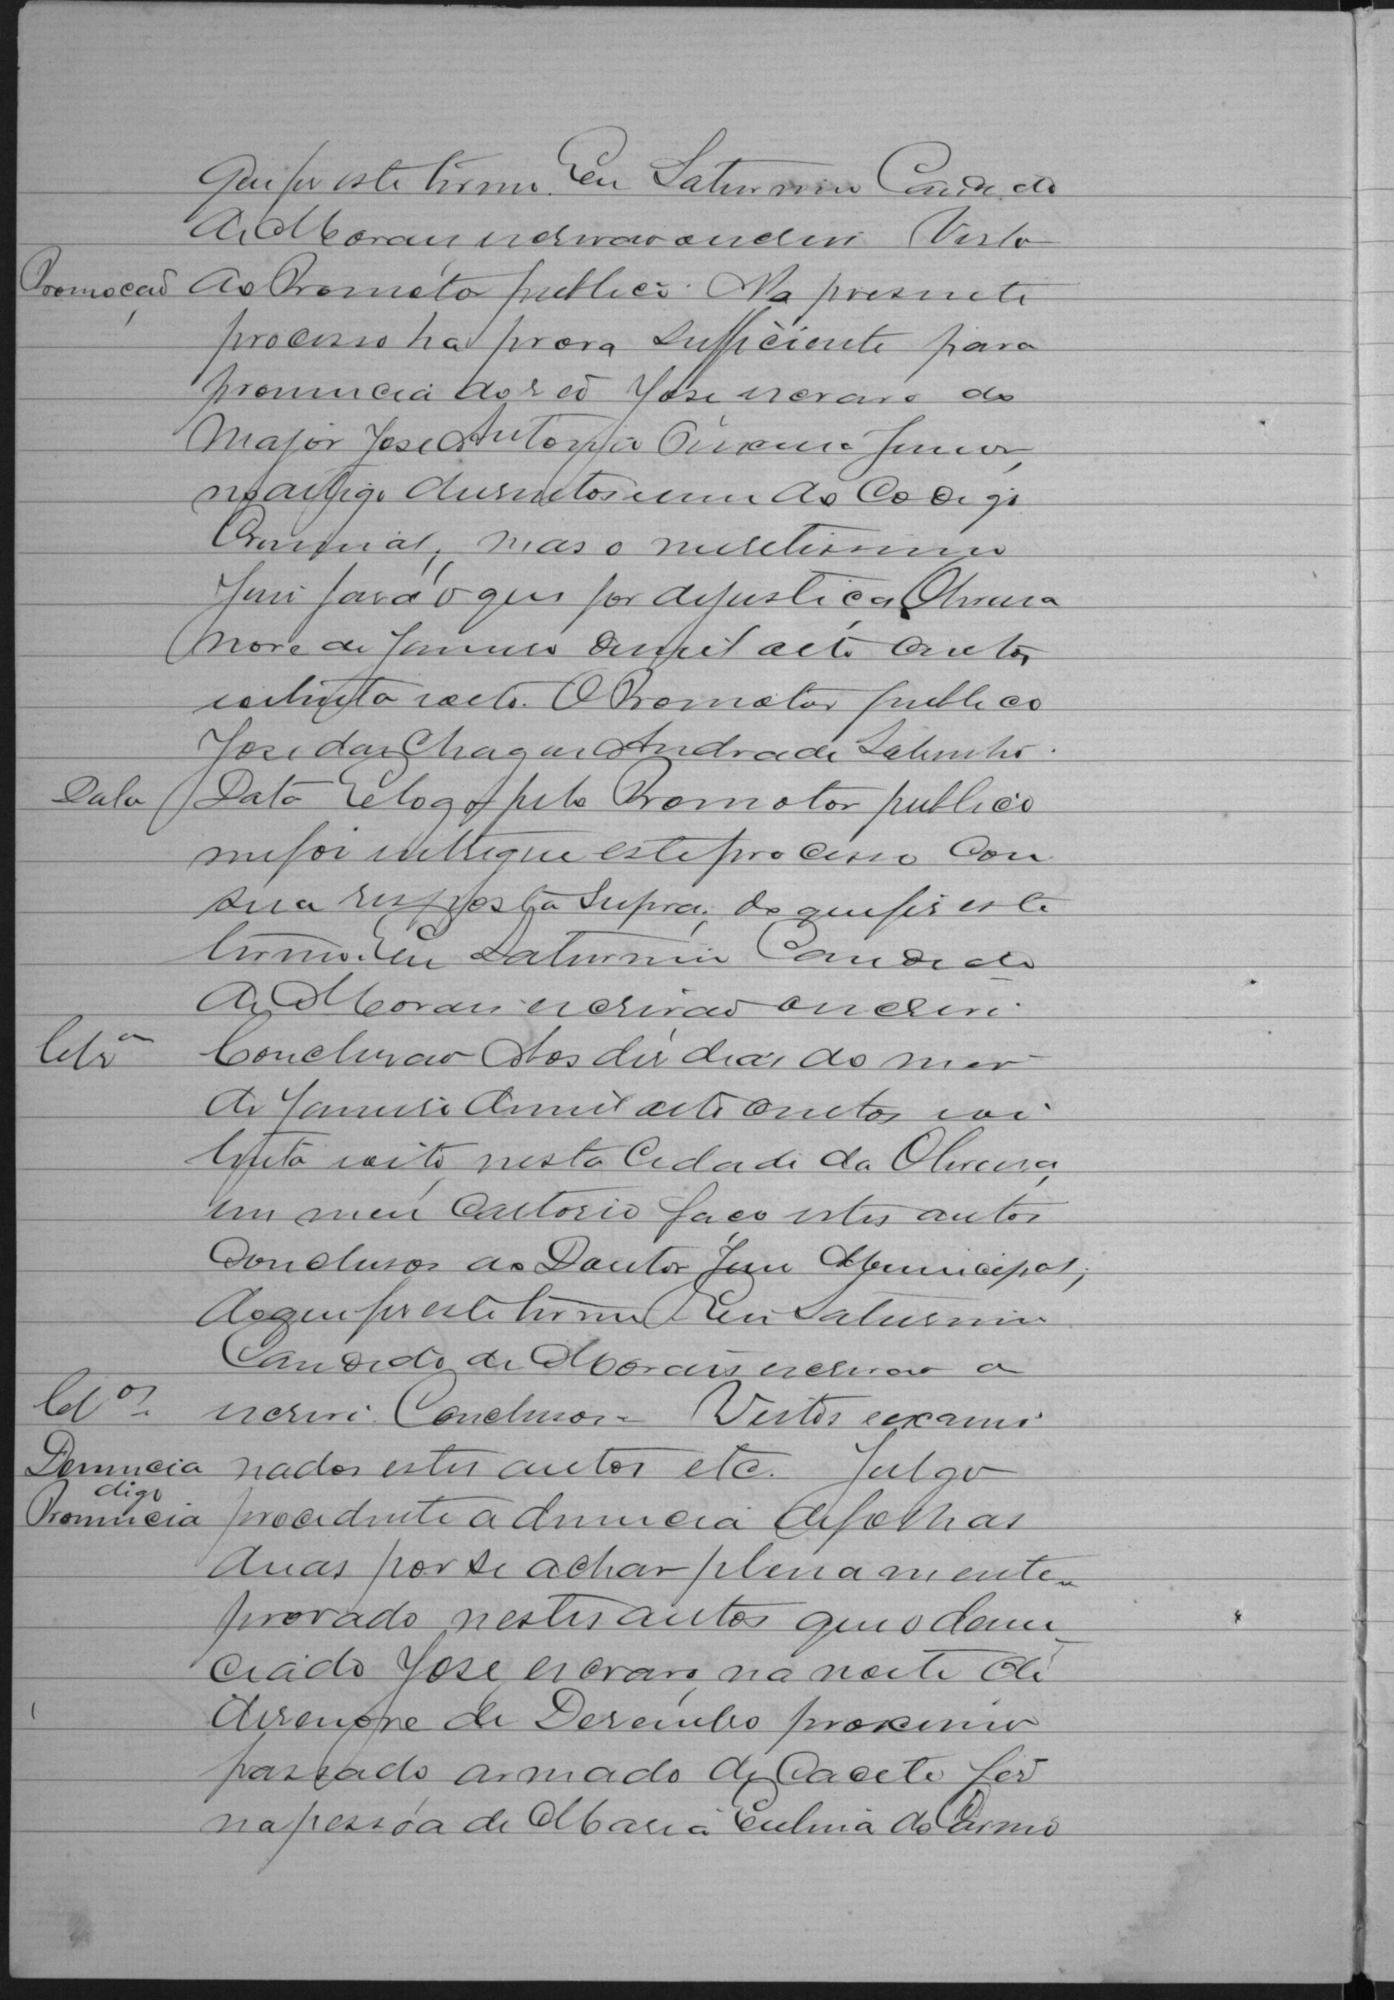 que fis este termo. Eu Saturnino Candido
de Moraes escrivão o escrevi Vista
Promoçaõ Ao Promotor publico. No presente
processo ha prova sufficiente para
pronuncia do reo José escravo do
Major José Antonio Junior,
no artigo duzentos e um do Codigo
Criminal, mas o meretissimo
Juis fará o que for de justiça, Oliveira
nove de Janeiro de mil oito centos
e oitenta e oito. O Promotor publico
José das Chagas Andrade Sobrinho.
Data Data E logo pelo Promotor publico
me foi entregue este processo com
sua resposta supra; do que fis este
termo. Eu Saturnino Candido
de Moraes escrivão o escrevi.
Cls.ᵃᵒ Conclusão Aos dés dias do mes
de Janeiro de mil oito centos e oi
tenta e oito, nesta Cidade da Oliveira,
em meu Cartorio faço estes autos
Conclusos ao Doutor Juis Municipal;
do que fis este termo Eu Saturnino
Candido de Moraes escrivão o
Cl.ᵒˢ escrevi. Conclusos = Vistos e exami
Denuncia nados estes autos etc. Julgo
digo
Pronuncia procedente a denuncia de folhas
duas por se achar plenamente
provado nestes autos que o denun
ciado José, escravo, na noite de
desenove de Desembro proximo
passado armado de Cacete fes
na pessôa de Maria do Carmo